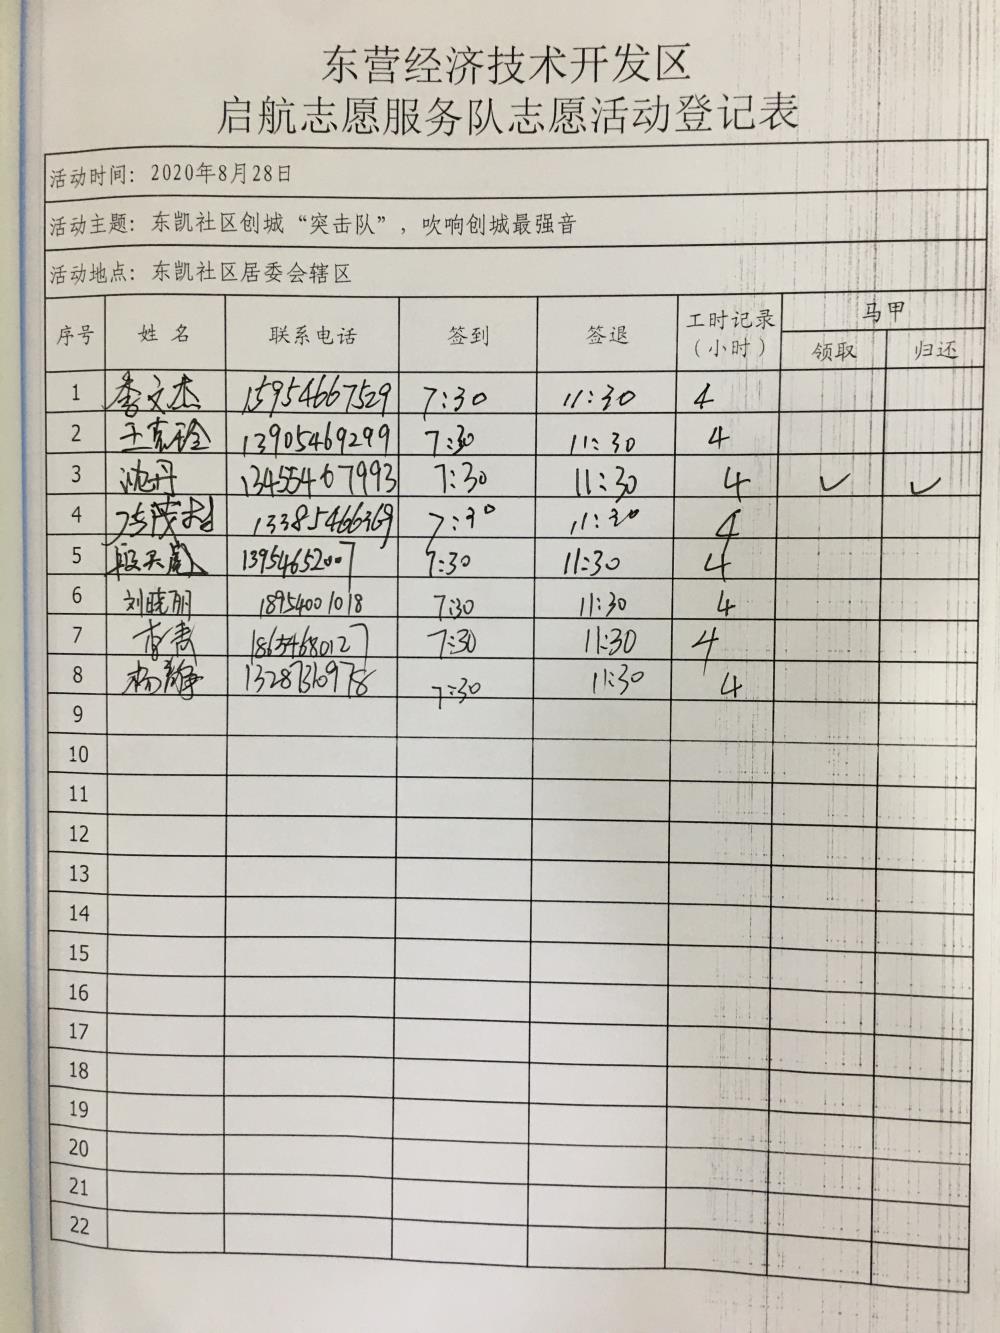 东营经济技术开发区
启航志愿服务队志愿活动登记表
活动时间：2020年8月28日
活动主题：东凯社区创城“突击队”，吹响创城最强音
活动地点：东凯社区居委会辖区
序号 姓名 联系电话 签到 签退 工时记录（小时） 马甲
领取 归还
1 李文杰 15954667529 7:30 11:30 4
2 13905469299 7:30 11:30 4
3 沈丹 13455467993 7:30 11:30 4 ✓ ✓
4 13385466369 7:30 11:30 4
5 13954652007 7:30 11:30 4
6 刘晓丽 18954001018 7:30 11:30 4
7 18654680127 7:30 11:30 4
8 杨静 7:30 11:30 4
9
10
11
12
13
14
15
16
17
18
19
20
21
22